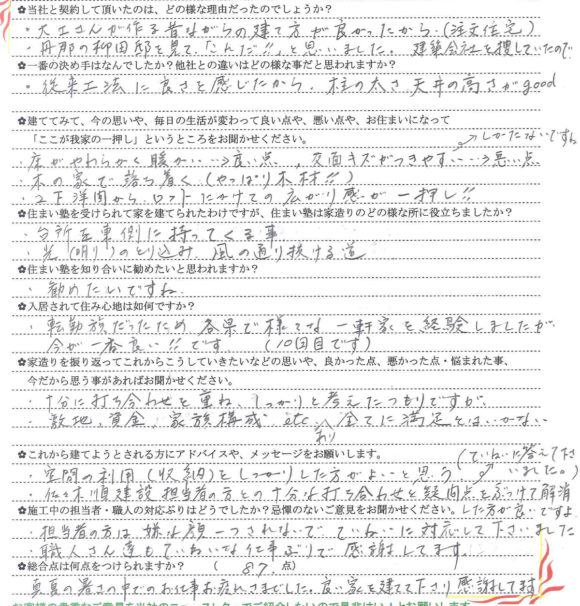 ✿当社と契約して頂いたのは、どの様な理由だったのでしょうか?
・大工さんが作る昔ながらの建て方が良かったから。(注文住宅)
・丹那の柳田邸を見て、「こんだ!!」と思いました。 建築会社を捜していたので
✿一番の決め手はなんでしたか?他社との違いはどの様な事だと思われますか?
・従来工法に良さを感じたから、柱の太さ、天井の高さがgood
✿建ててみて、今の思いや、毎日の生活が変わって良い点や、悪い点や、お住まいになって
「ここが我家の一押し」というところをお聞かせください。
しかたないですね
・床がやわらかく暖かい→良い点 、反面キズがつきやすい…→悪い点
・木の家で落ち着く(やっぱり木材!!)
・2F洋間から、ロフトにかけての広がり感が一押し!!
✿住まい塾を受けられて家を建てられたわけですが、住まい塾は家造りのどの様な所に役立ちましたか?
・台所を東側に持ってくる事
・光(明り)のとり込み 風の通り抜ける道
✿住まい塾を知り合いに勧めたいと思われますか?
・勧めたいですね
✿入居されて住み心地は如何ですか?
・転勤族だったため 各県で様々な一軒家を経験しましたが
今が一番良い!!です (10回目です)
✿家造りを振り返ってこれからこうしていきたいなどの思い、良かった点、悪かった点・悩まれた事、
今だから思う事があればお聞かせください。
・十分に打ち合わせを重ね、しっかりと考えたつもりですが、
・敷地、資金、家族構成 etc あり 全てに満足とはいかない
✿これから建てようとされる方にアドバイスや、メッセージをお願いします。
(ていねいに答えて下さいました。)
・空間の利用(収納)をしっかりした方がよいと思う
・佐々木順建設担当者の方との十分な打ち合わせと疑問点をぶつけて解消
した方が良いですよ
✿施工中の担当者・職人の対応ぶりはどうでしたか?忌憚のないご意見をお聞かせください。
・担当者の方は嫌な顔一つされないで ていねいに対応して下さいました
・職人さん達もていねいな仕事ぶりで感謝してます。
✿総合点は何点をつけられますか? ( 87 点)
真夏の暑さの中でのお仕事お疲れさまでした。良い家を建てて下さり感謝してます